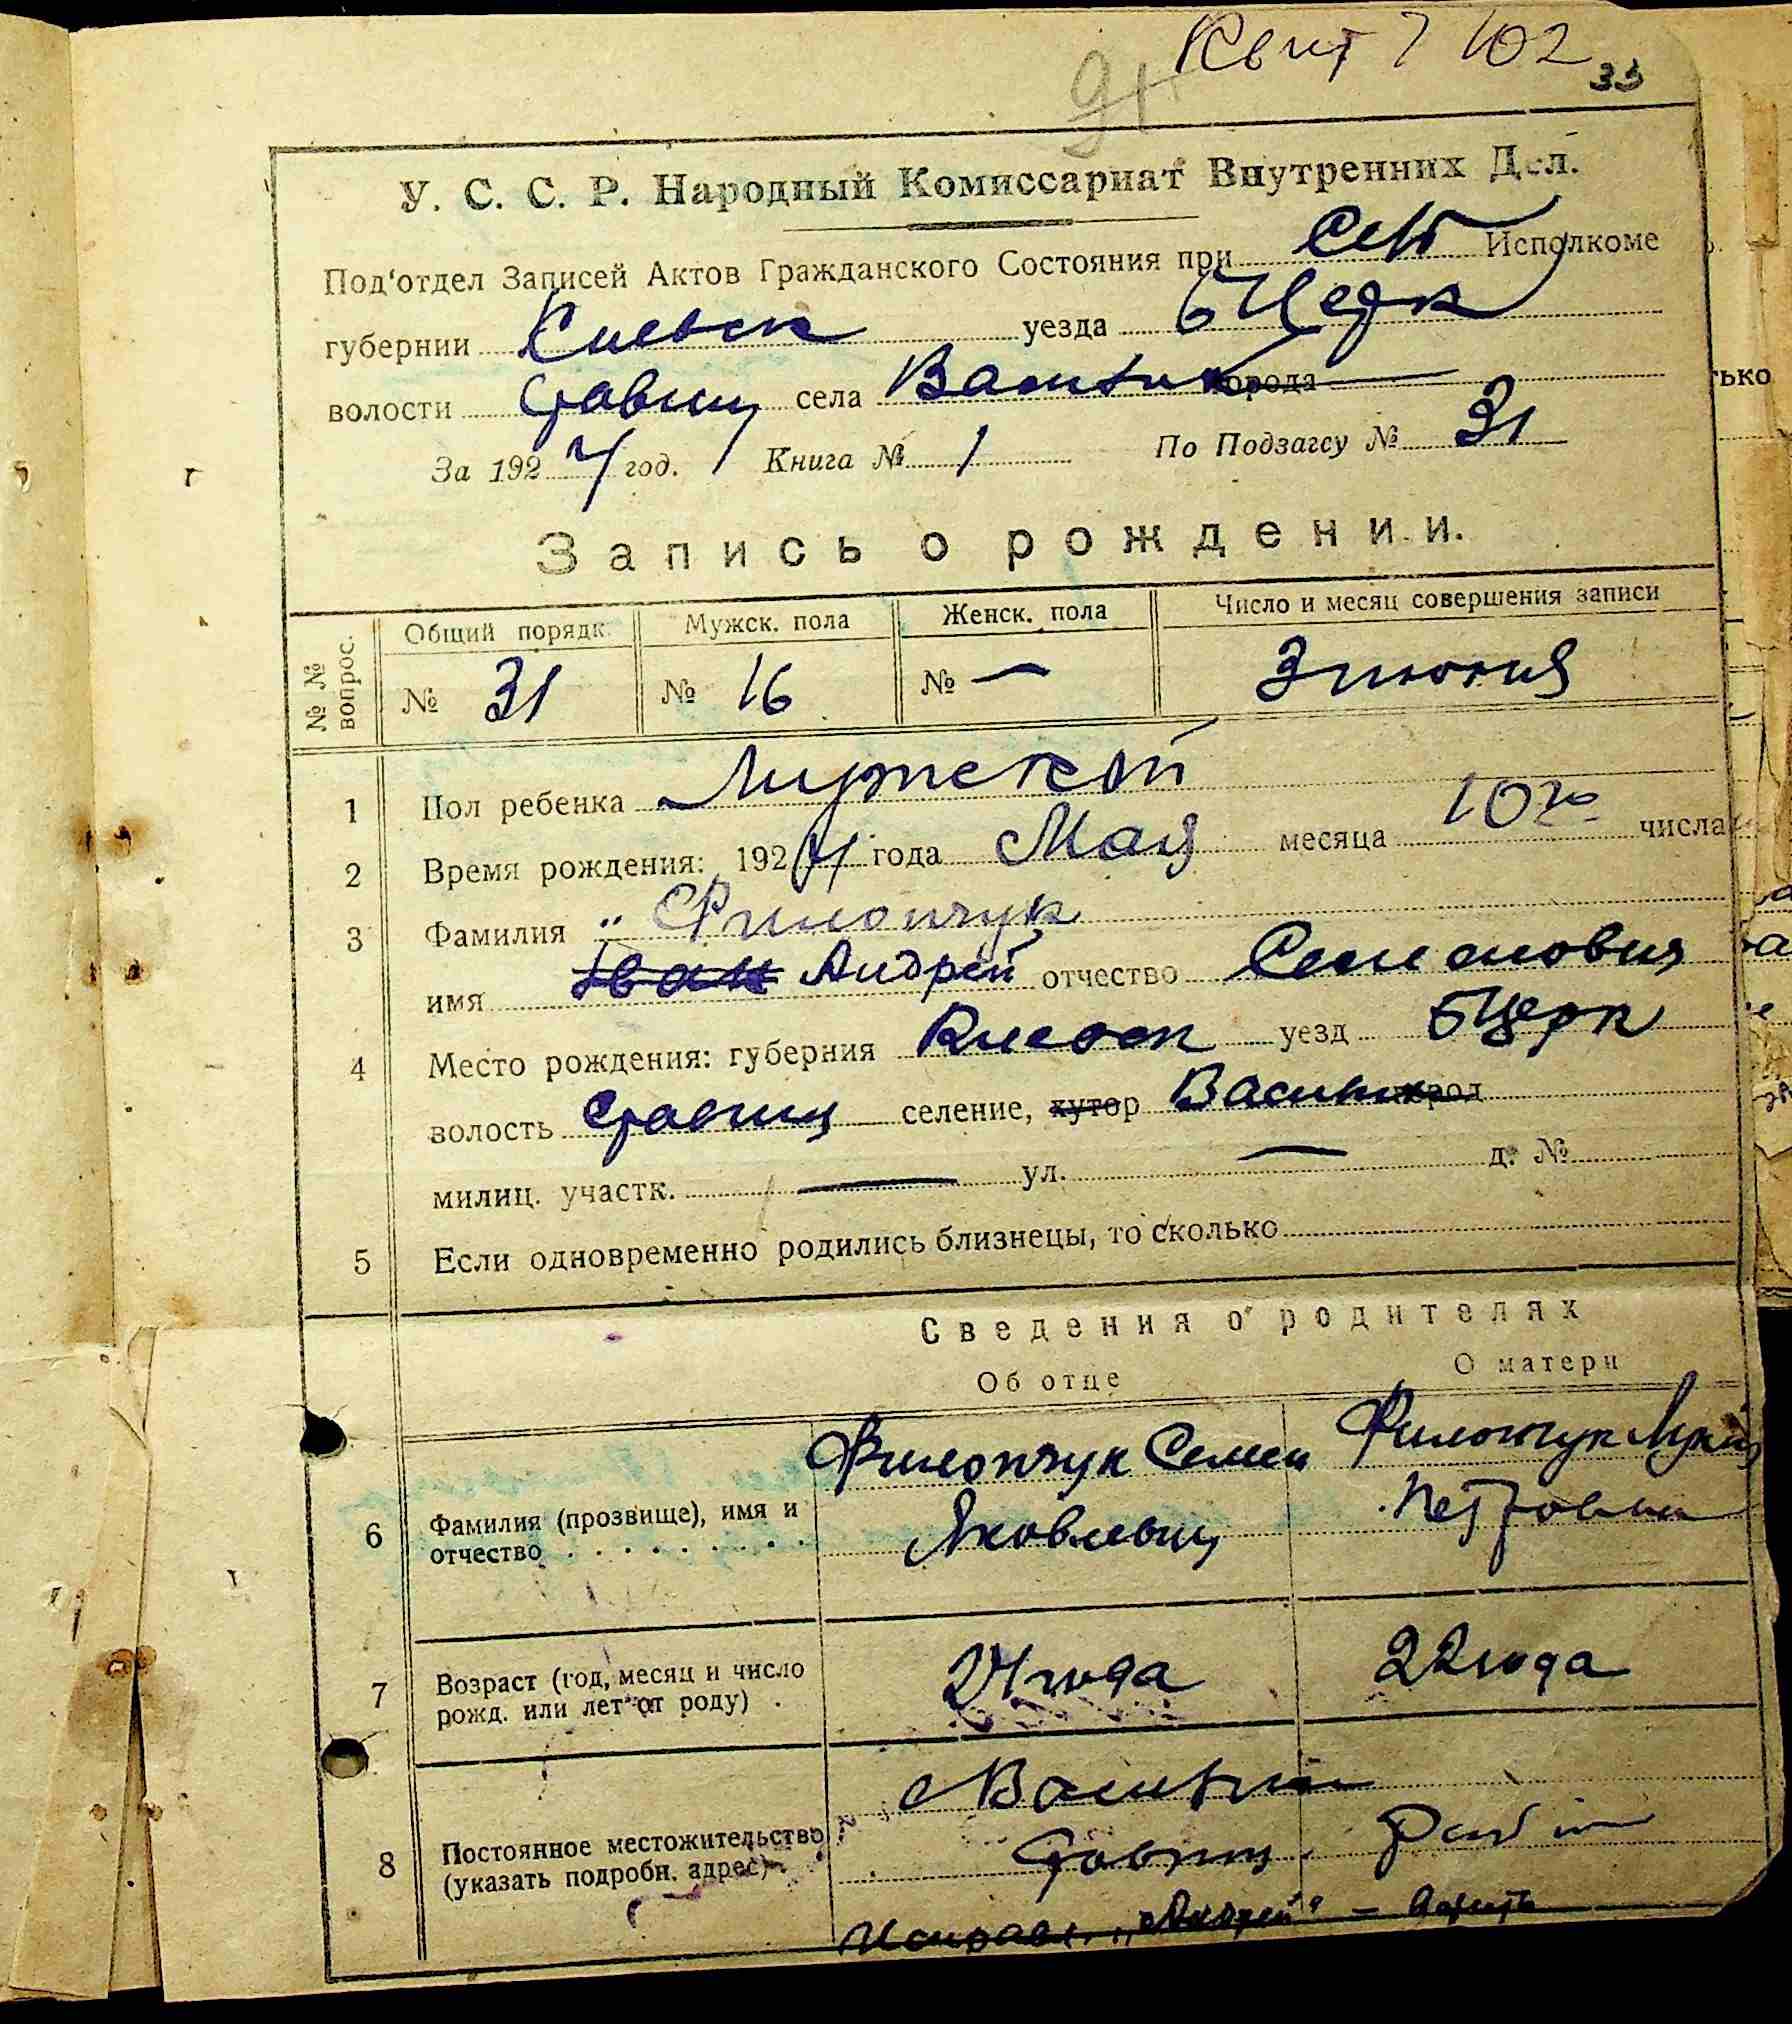 102
33
У. С. С. Р. Народный Комиссариат Внутренних Дел.
Под'отдел Записей Актов Гражданского Состояния при Исполкоме
губернии Киевск уезда бЦерк
волости Ставищ села города
За 1924 год. Книга № 1 По Подзагсу № 31
Запись о рождении.
№ № вопрос. Общий порядк. Мужск. пола Женск. пола Число и месяц совершения записи
№ 31 № 16 № — 3 июня
1 Пол ребенка Мужской
2 Время рождения: 1924 года Мая месяца 10го числа
3 Фамилия Филопчук
имя Іван Андрей отчество Семенович
4 Место рождения: губерния Киевск уезд БЦерк
волость Ставищ селение, хутор город
милиц. участк. — ул. — д. №
5 Если одновременно родились близнецы, то сколько
Сведения о родителях
Об отце О матери
Филопчук Семен Филопчук
6 Фамилия (прозвище), имя и отчество Яковлевич Петровна
7 Возраст (год, месяц и число рожд. или лет от роду) 24 года 22 года
8 Постоянное местожительство (указать подробн. адрес)
Ставищ
Исправл. „Андрей" —